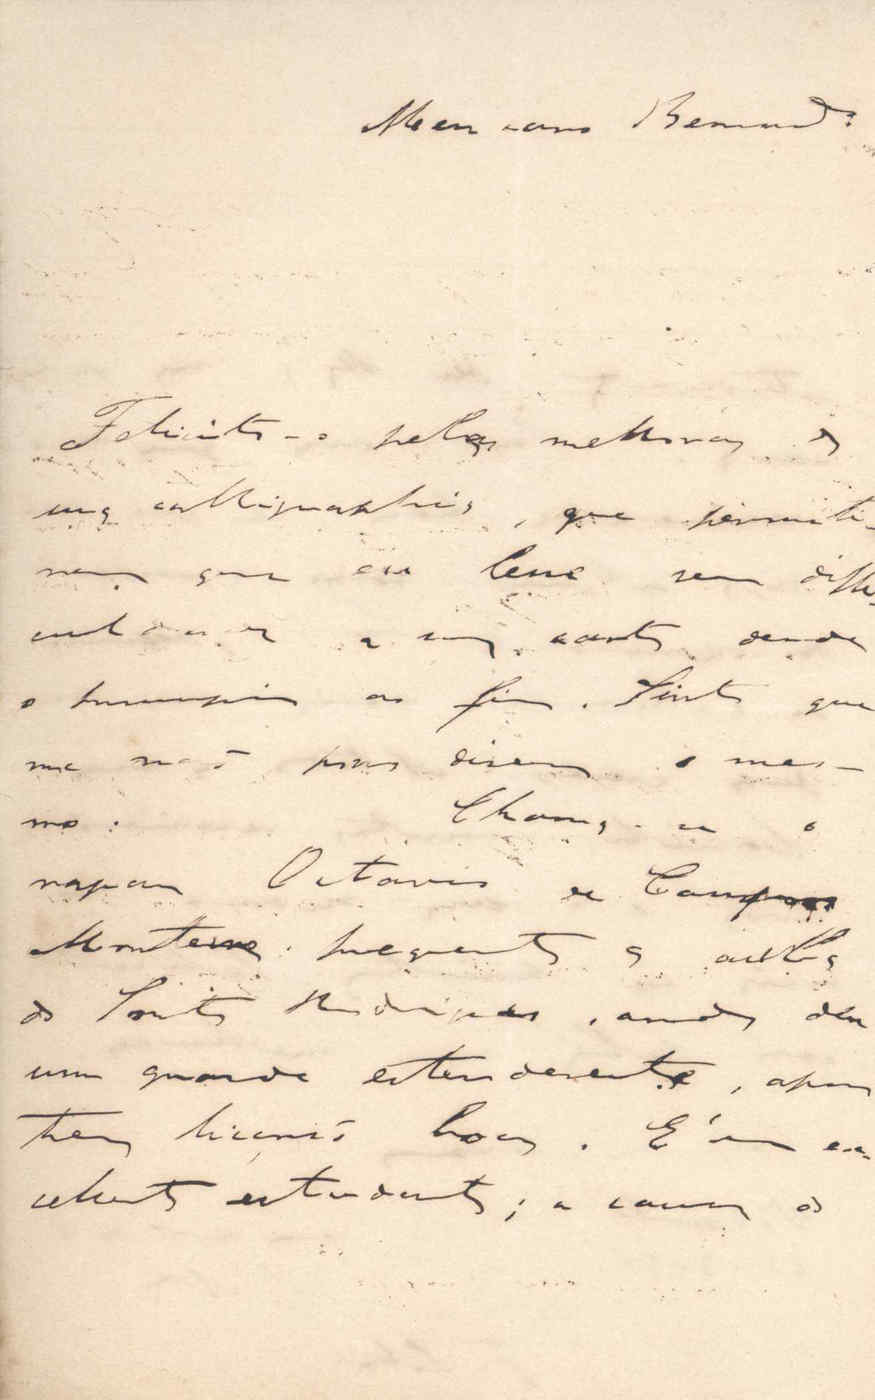 Meu caro Bernardo
Felicito-o pelas melhoras da
sua calligraphia, que permitti-
ram que eu lesse sem diffi-
culdade a sua carta desde
o principio ao fim. Sinto que
me não possa dizer o mes-
mo. Chama-se o
rapaz Octavio de Campos
Monteiro. frequenta a aula
do Rodrigues, onde deu
um grande estenderete, apoz
tres licções boas. E' um ex-
cellente estudante; a causa do